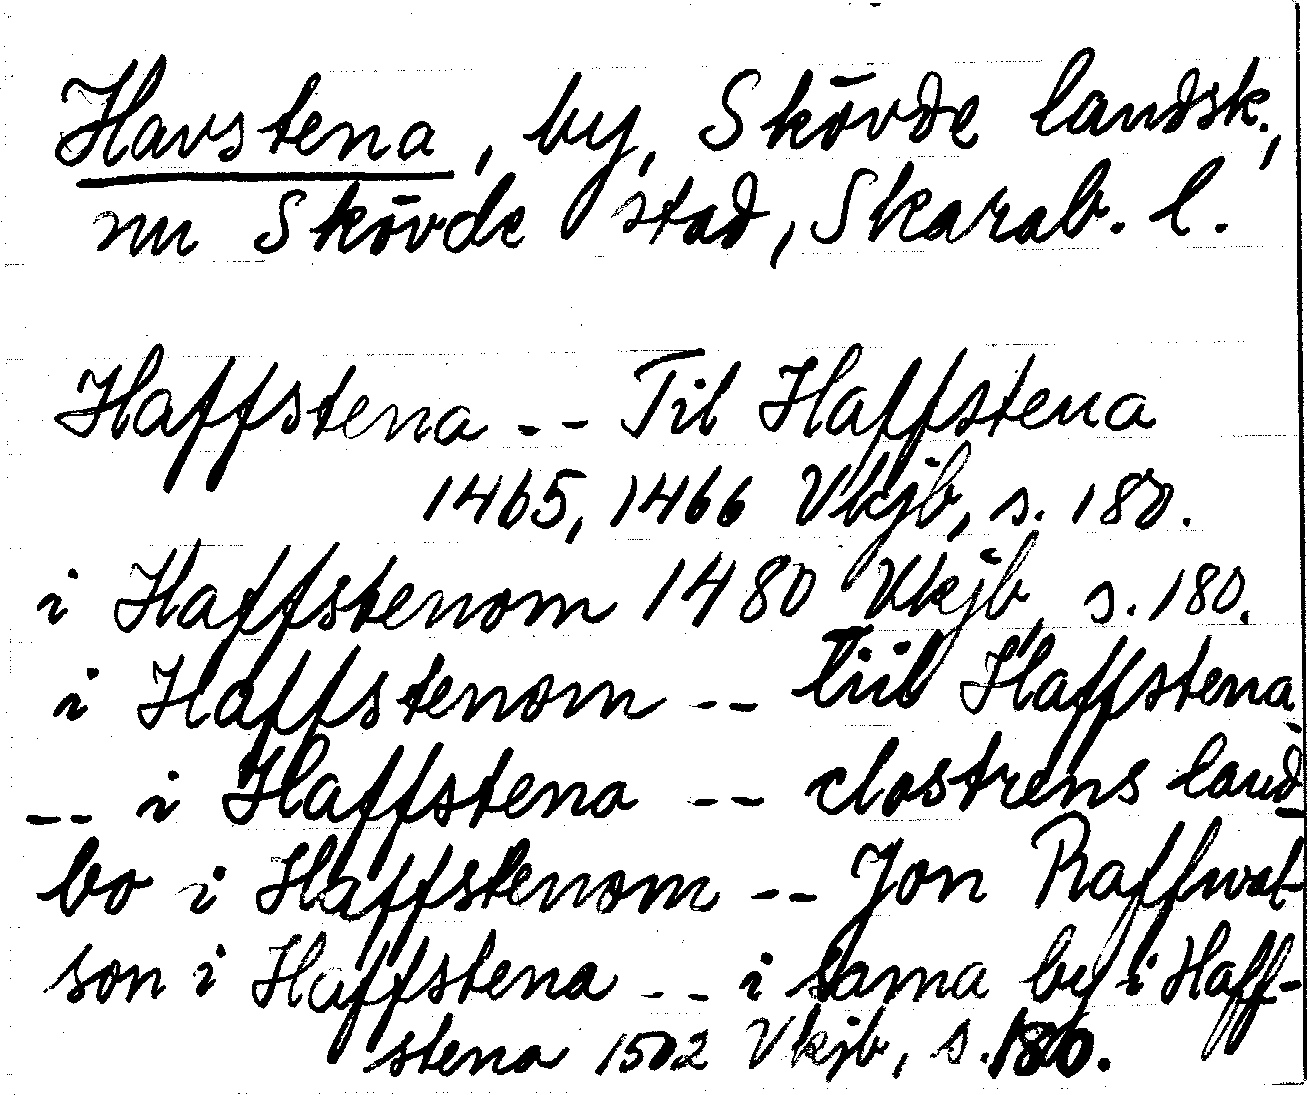 Havstena, by, Skövde landsk.,
nu Skövde stad, Skarab. l.
Haffstena -- Til Haffstena
1465, 1466 Vkjb, s. 180.
i Haffstenom 1480 Vkjb, s. 180.
i Haffstenom -- tiil Haffstena
-- i Haffstena -- clostrens land-
bo i Haffstenom -- Jon Raffwal-
son i Haffstena -- i sama by i Haff-
stena 1502 Vkjb, s. 180.